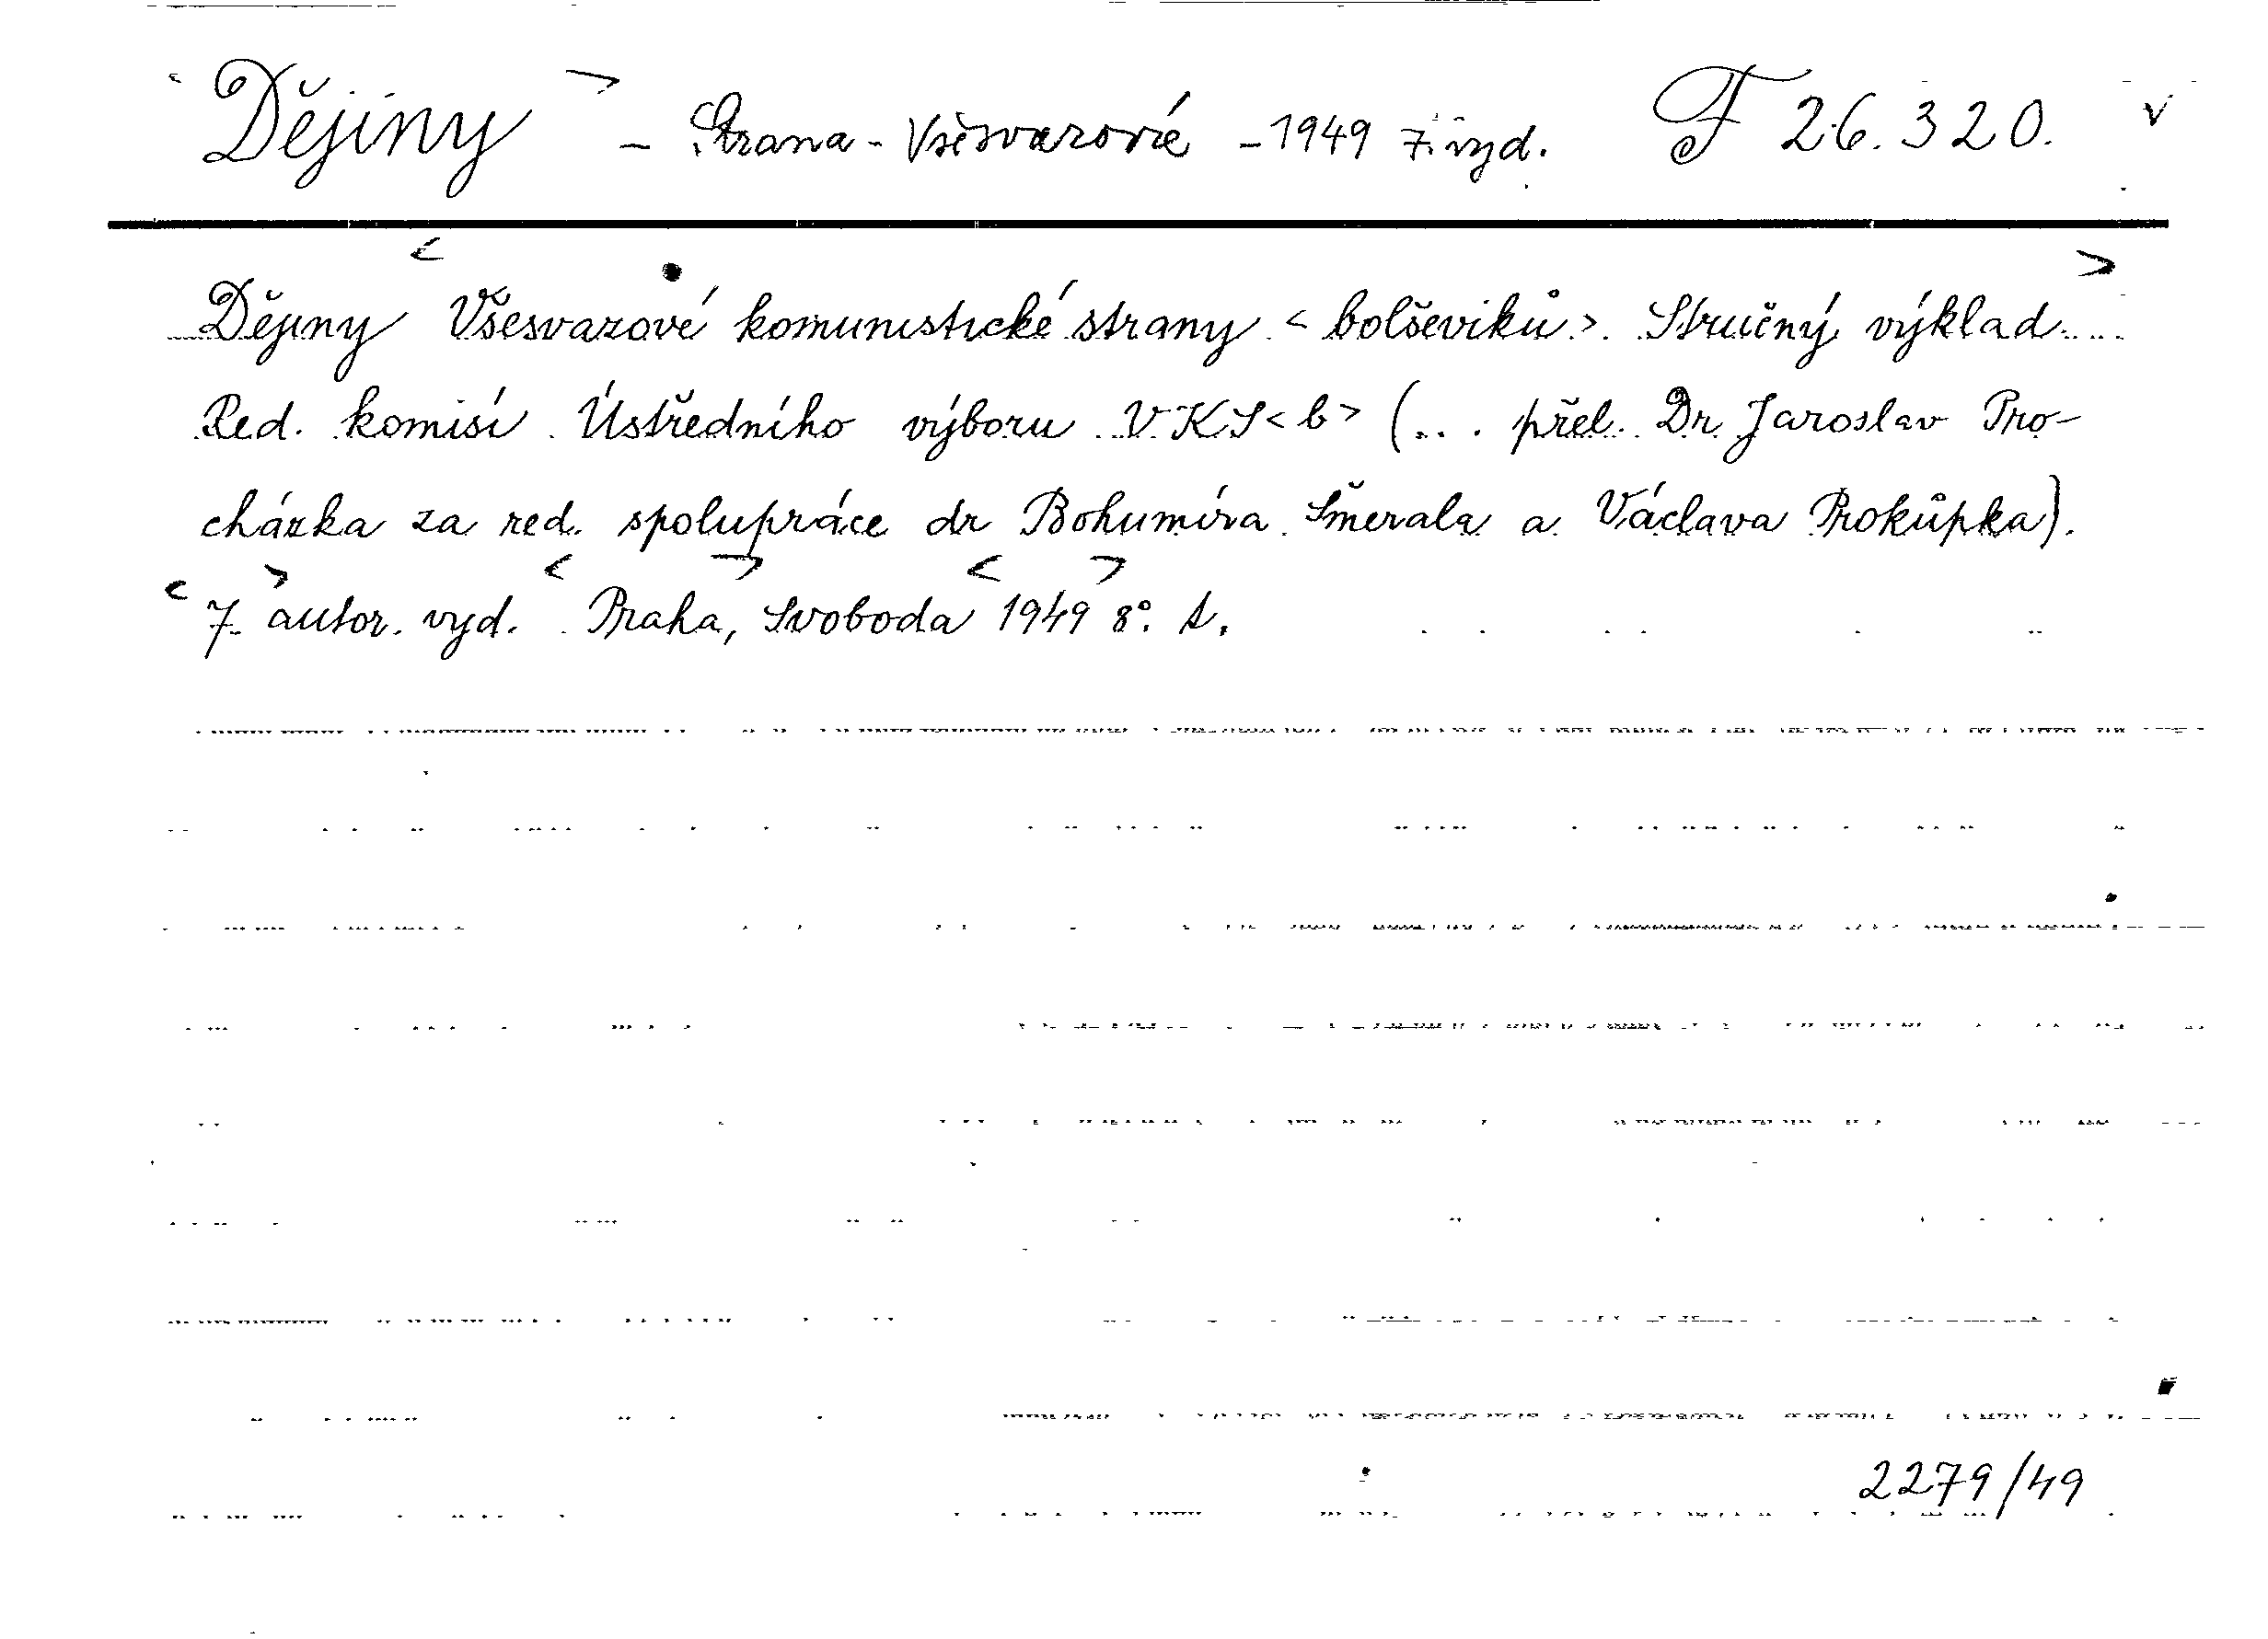 < Dějiny > - Strana - Všesvazové - 1949 7. vyd. F 26.320. v
Dějiny < Všesvazové komunistické strany < bolševiků >. Stručný výklad. >
Red. komisí Ústředního výboru VKS < b > (... přel. Dr. Jaroslav Pro-
cházka za red. spolupráce dr Bohumíra Šmerala a Václava Prokůpka).
< 7. > autor. vyd. < Praha, > Svoboda < 1949 > 8°. s.
2279/49